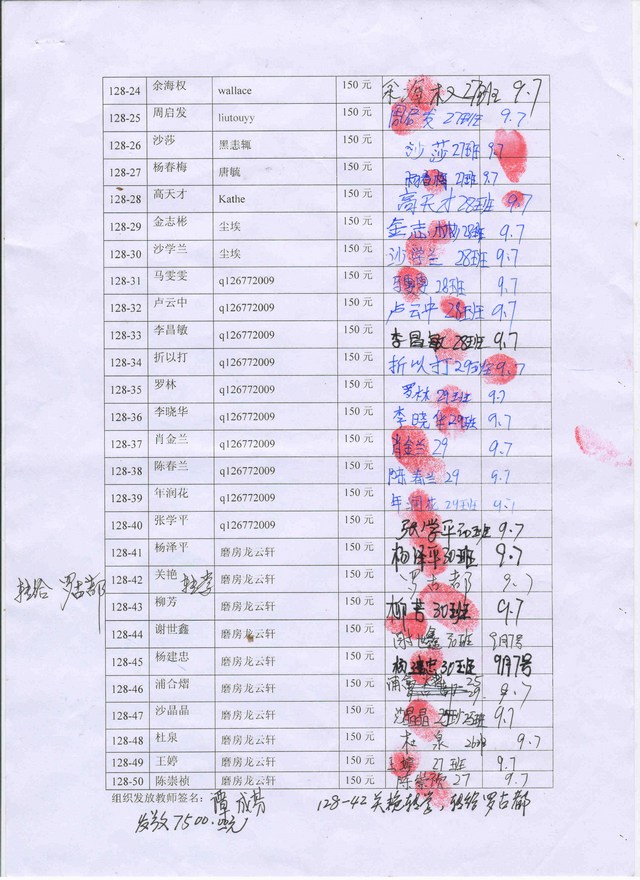 128-24 余海权 wallace 150 元 余海权 27班 9.7
128-25 周启发 liutouyy 150 元 周启发 27班 9.7
128-26 沙莎 黑志辄 150 元 沙莎 27班 9.7
128-27 杨春梅 唐毓 150 元 杨春梅 27班 9.7
128-28 高天才 Kathe 150 元 高天才 28班 9.7
128-29 金志彬 尘埃 150 元 金志彬 28班 9.7
128-30 沙学兰 尘埃 150 元 沙学兰 28班 9.7
128-31 马雯雯 q126772009 150 元 马雯雯 28班 9.7
128-32 卢云中 q126772009 150 元 卢云中 28班 9.7
128-33 李昌敏 q126772009 150 元 李昌敏 28班 9.7
128-34 折以打 q126772009 150 元 折以打 29班 9.7
128-35 罗林 q126772009 150 元 罗林 29班 9.7
128-36 李晓华 q126772009 150 元 李晓华 29班 9.7
128-37 肖金兰 q126772009 150 元 肖金兰 29 9.7
128-38 陈春兰 q126772009 150 元 陈春兰 29 9.7
128-39 年润花 q126772009 150 元 年润花 29班 9.7
128-40 张学平 q126772009 150 元 张学平 30班 9.7
128-41 杨泽平 磨房龙云轩 150 元 杨泽平 30班 9.7
转给 罗古都 128-42 关艳 转学 磨房龙云轩 150 元 罗古都 9.7
128-43 柳芳 磨房龙云轩 150 元 柳芳 30班 9.7
128-44 谢世鑫 磨房龙云轩 150 元 谢世鑫 30班 9月7号
128-45 杨建忠 磨房龙云轩 150 元 杨建忠 30班 9月7号
128-46 浦合熠 磨房龙云轩 150 元 25 9.7
128-47 沙晶晶 磨房龙云轩 150 元 沙晶晶 25班 9.7
128-48 杜泉 磨房龙云轩 150 元 杜泉 26班 9.7
128-49 王婷 磨房龙云轩 150 元 王婷 27班 9.7
128-50 陈崇祯 磨房龙云轩 150 元 陈崇祯 27 9.7
组织发放教师签名： 成芳 128-42 关艳转学，转给罗古都
发放 7500.00元